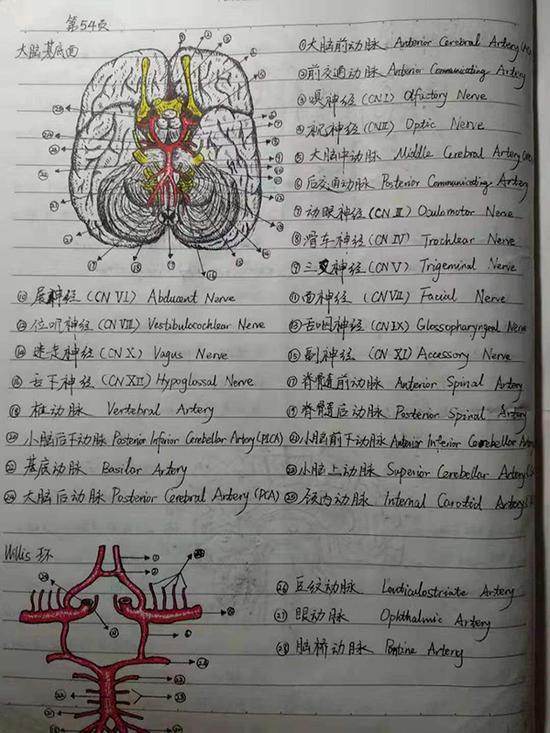 第54页
大脑基底面
①大脑前动脉 Anterior Cerebral Artery
②前交通动脉 Anterior Communicating Artery
③嗅神经 (CN I) Olfactory Nerve
④视神经 (CN II) Optic Nerve
⑤大脑中动脉 Middle Cerebral Artery
⑥后交通动脉 Posterior Communicating Artery
⑦动眼神经 (CN III) Oculomotor Nerve
⑧滑车神经 (CN IV) Trochlear Nerve
⑨三叉神经 (CN V) Trigeminal Nerve
⑩展神经 (CN VI) Abducent Nerve
⑪面神经 (CN VII) Facial Nerve
位听神经 (CN VIII) Vestibulocochlear Nerve
⑬舌咽神经 (CN IX) Glossopharyngeal Nerve
⑭迷走神经 (CN X) Vagus Nerve
⑮副神经 (CN XI) Accessory Nerve
⑯舌下神经 (CN XII) Hypoglossal Nerve
⑰脊髓前动脉 Anterior Spinal Artery
⑱椎动脉 Vertebral Artery
⑲脊髓后动脉 Posterior Spinal Artery
⑳小脑后下动脉 Posterior Inferior Cerebellar Artery (PICA)
㉑小脑前下动脉 Anterior Inferior Cerebellar Artery
㉒基底动脉 Basilar Artery
㉓小脑上动脉 Superior Cerebellar Artery
㉔大脑后动脉 Posterior Cerebral Artery (PCA)
㉕颈内动脉 Internal Carotid Artery
Willis 环
㉖豆纹动脉 Lenticulostriate Artery
㉗眼动脉 Ophthalmic Artery
㉘脑桥动脉 Pontine Artery